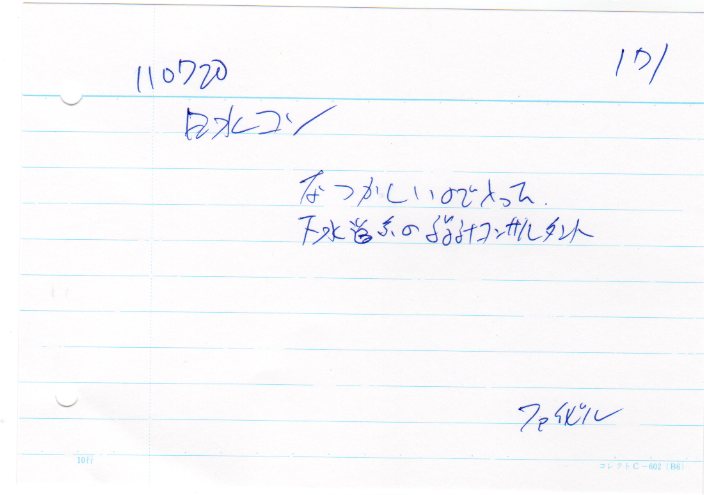 110720
171
日水コン
なつかしいのでとった.
下水道系の設計コンサルタント
10行
コレクトC-602(B6)